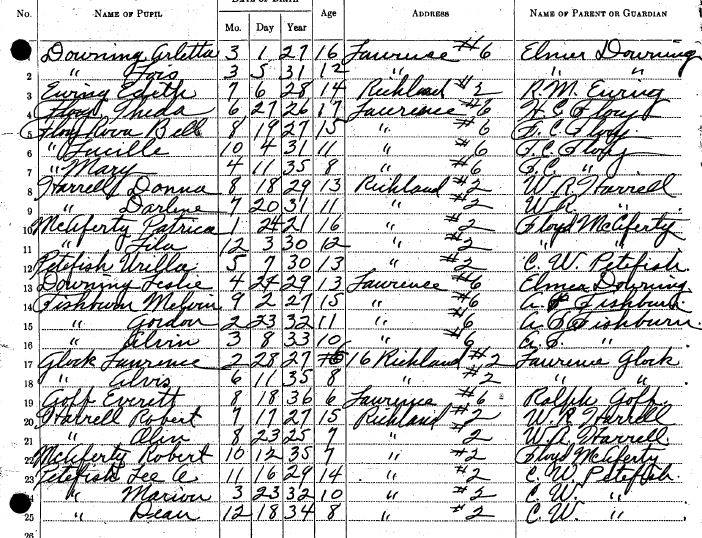 DATE OF BIRTH
No. NAME OF PUPIL Mo. Day Year Age ADDRESS NAME OF PARENT OR GUARDIAN
Downing Arletta 3 1 27 16 Lawrence #6 Elmer Downing
2 " Lois 3 5 31 12 " " "
3 Euring Edith 7 6 28 14 Richland #2 R.M. Euring
4 Flory Thida 6 27 26 17 Lawrence #6 H.C. Flory
5 Flory Rova Bell 8 19 27 15 " #6 F.C. Flory
6 " Lucille 10 4 31 11 " #6 F.C. Flory
7 " Mary 4 11 35 8 " #6 F.C. "
8 Harrell Donna 8 18 29 13 Richland #2 W.R. Harrell
9 " Darlene 7 20 31 11 " #2 W.R. "
10 McCiferty Patricia 1 24 21 16 " #2 Floyd McCiferty
11 " Lila 12 3 30 12 " #2 " "
12 Petefish Urilla 5 7 30 13 " #2 C. W. Petefish
13 Downing Leslie 4 24 29 13 Lawrence #6 Elmer Downing
14 Fishburn Melvin 9 2 27 15 " #6 A. Fishburn
15 " Gordon 2 23 32 11 " #6 A. Fishburn
16 " Alvin 3 8 33 10 " #6 "
17 Glock Lawrence 2 28 27 16 Richland #2 Lawrence Glock
18 " Alvis 6 11 35 8 " #2 " "
19 Goff Everett 8 18 36 6 Lawrence #6 Ralph Goff
20 Harrell Robert 7 17 27 15 Richland #2 W.R. Harrell
21 " Olin 8 23 25 7 " 2 W.R. Harrell
22 McCiferty Robert 10 12 35 7 " #2 Floyd McCiferty
23 Petefish Lee A 11 16 29 14 " #2 C. W. Petefish
24 " Marion 3 23 32 10 " #2 C. W. "
25 " Dean 12 18 34 8 " #2 C. W. "
26